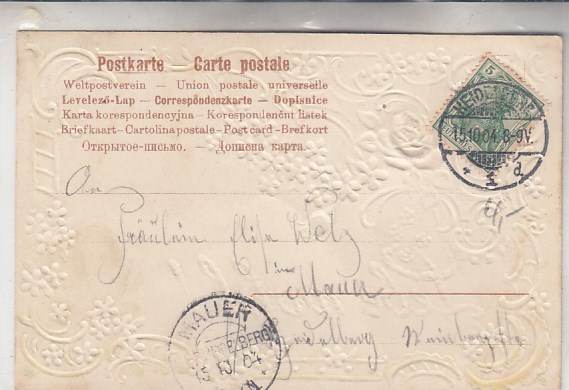 Postkarte – Carte postale
Weltpostverein – Union postale universelle
Levelező-Lap – Correspondenzkarte – Dopisnice
Karta korespondencyjna – Korespondenční listek
Briefkaart – Cartolina postale – Post card – Brefkort
Открытое-письмо. – Дописна карта.
5
15.10.04.8-9V.
An
Fräulein Elisa Welz
in
Mauer
Heidelberg
MAUER
HEIDELBERG
15 10 04